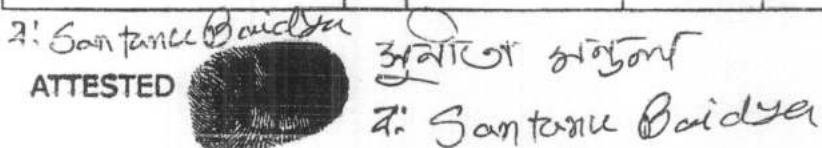 ব: Santanu Baidya
ATTESTED
সুনীতা মন্ডল
ব: Santanu Baidya